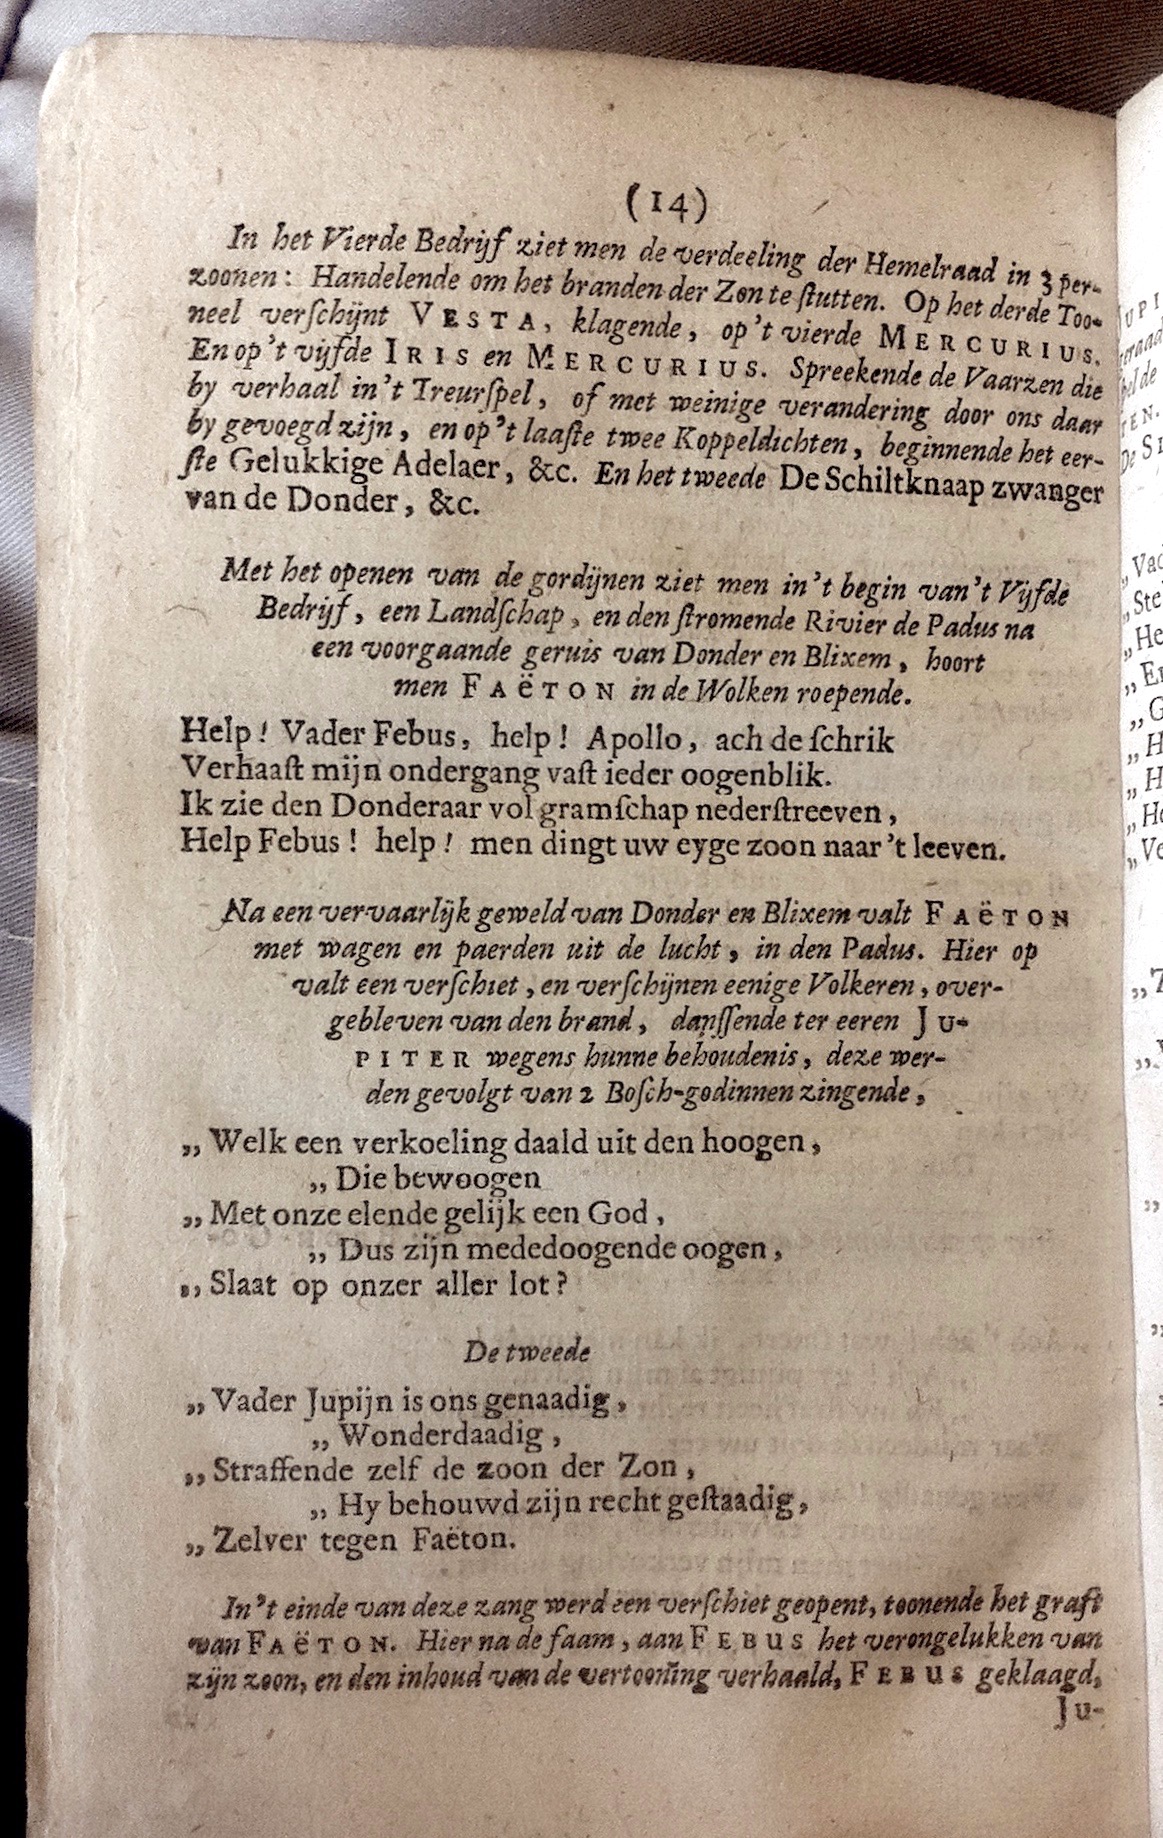 (14)
In het Vierde Bedrijf ziet men de verdeeling der Hemelraad in 3 per-
zoonen: Handelende om het branden der Zon te ſtutten. Op het derde Too-
neel verſchijnt VESTA, klagende, op 't vierde MERCURIUS.
En op 't vijfde IRIS en MERCURIUS. Spreekende de Vaarzen die
by verhaal in 't Treurſpel, of met weinige verandering door ons daar
by gevoegd zijn, en op 't laaſte twee Koppeldichten, beginnende het eer-
ſte Gelukkige Adelaer, &c. En het tweede De Schiltknaap zwanger
van de Donder, &c.
Met het openen van de gordijnen ziet men in 't begin van 't Vijfde
Bedrijf, een Landſchap, en den ſtromende Rivier de Padus na
een voorgaande geruis van Donder en Blixem, hoort
men FAËTON in de Wolken roepende.
Help! Vader Febus, help! Apollo, ach de ſchrik
Verhaaſt mijn ondergang vaſt ieder oogenblik.
Ik zie den Donderaar vol gramſchap nederſtreeven,
Help Febus! help! men dingt uw eyge zoon naar 't leeven.
Na een vervaarlijk geweld van Donder en Blixem valt FAËTON
met wagen en paerden uit de lucht, in den Padus. Hier op
valt een verſchiet, en verſchijnen eenige Volkeren, over-
gebleven van den brand, danſſende ter eeren JU-
PITER wegens hunne behoudenis, deze wer-
den gevolgt van 2 Boſch-godinnen zingende,
„ Welk een verkoeling daald uit den hoogen,
„ Die bewoogen
„ Met onze elende gelijk een God,
„ Dus zijn mededoogende oogen,
„ Slaat op onzer aller lot?
De tweede
„ Vader Jupijn is ons genaadig,
„ Wonderdaadig,
„ Straffende zelf de zoon der Zon,
„ Hy behouwd zijn recht geſtaadig,
„ Zelver tegen Faëton.
In 't einde van deze zang werd een verſchiet geopent, toonende het graft
van FAËTON. Hier na de faam, aan FEBUS het verongelukken van
zijn zoon, en den inhoud van de vertooning verhaald, FEBUS geklaagd,
Ju-